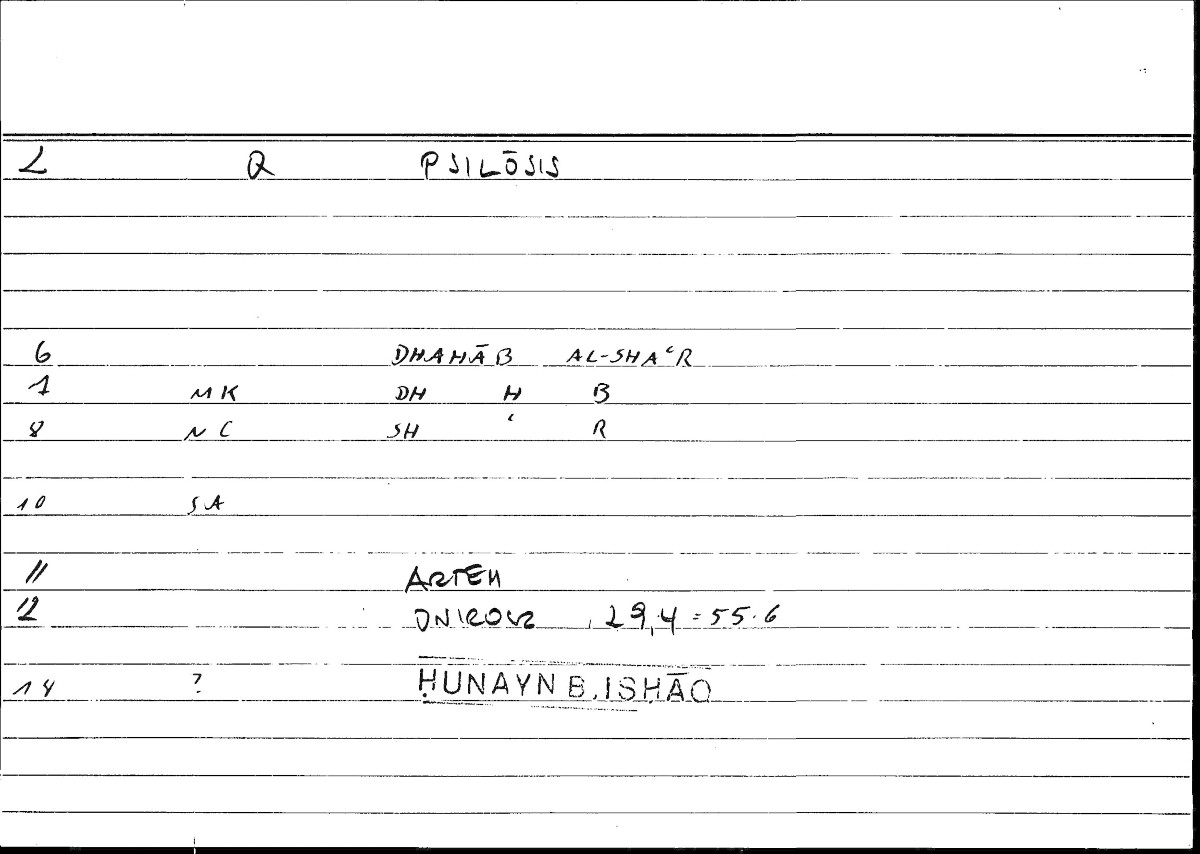 L Q PSILŌSIS
6 DHAHĀB AL-SHAʿR
7 MK DH H B
8 NC SH ʿ R
10 SA
11 ARTEM
12 ONIROCR 29,4 = 55.6
14 ? ḤUNAYN B. ISḤĀQ